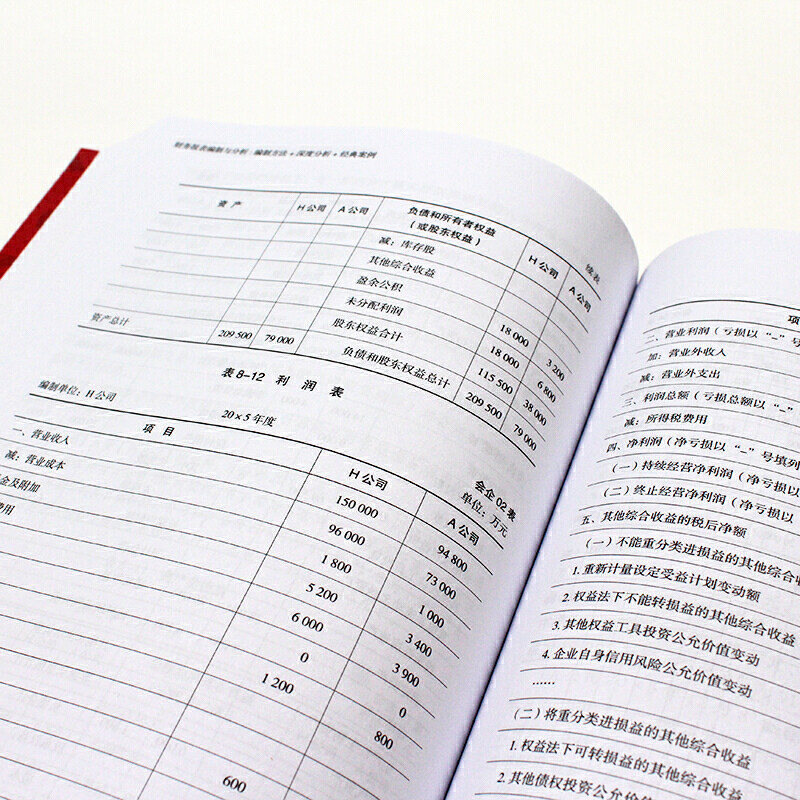 财务报表编制与分析：编制方法+深度分析+经典案例
续表
资产 H公司 A公司 负债和所有者权益（或股东权益） H公司 A公司
减：库存股
其他综合收益
盈余公积 18 000 3 200
未分配利润 18 000 6 800
股东权益合计 115 500 38 000
资产总计 209 500 79 000 负债和股东权益总计 209 500 79 000
表8-12 利润表
会企02表
编制单位：H公司 20×5年度 单位：万元
项目 H公司 A公司
一、营业收入 150 000 94 800
减：营业成本 96 000 73 000
金及附加 1 800 1 000
费用 5 200 3 400
6 000 3 900
0 0
1 200 800
600
项
二、营业利润（亏损以“-”号
加：营业外收入
减：营业外支出
三、利润总额（亏损总额以“-”
减：所得税费用
四、净利润（净亏损以“-”号填列
（一）持续经营净利润（净亏损以
（二）终止经营净利润（净亏损以
五、其他综合收益的税后净额
（一）不能重分类进损益的其他综合收
1.重新计量设定受益计划变动额
2.权益法下不能转损益的其他综合收益
3.其他权益工具投资公允价值变动
4.企业自身信用风险公允价值变动
……
（二）将重分类进损益的其他综合收益
1.权益法下可转损益的其他综合收益
2.其他债权投资公允价值